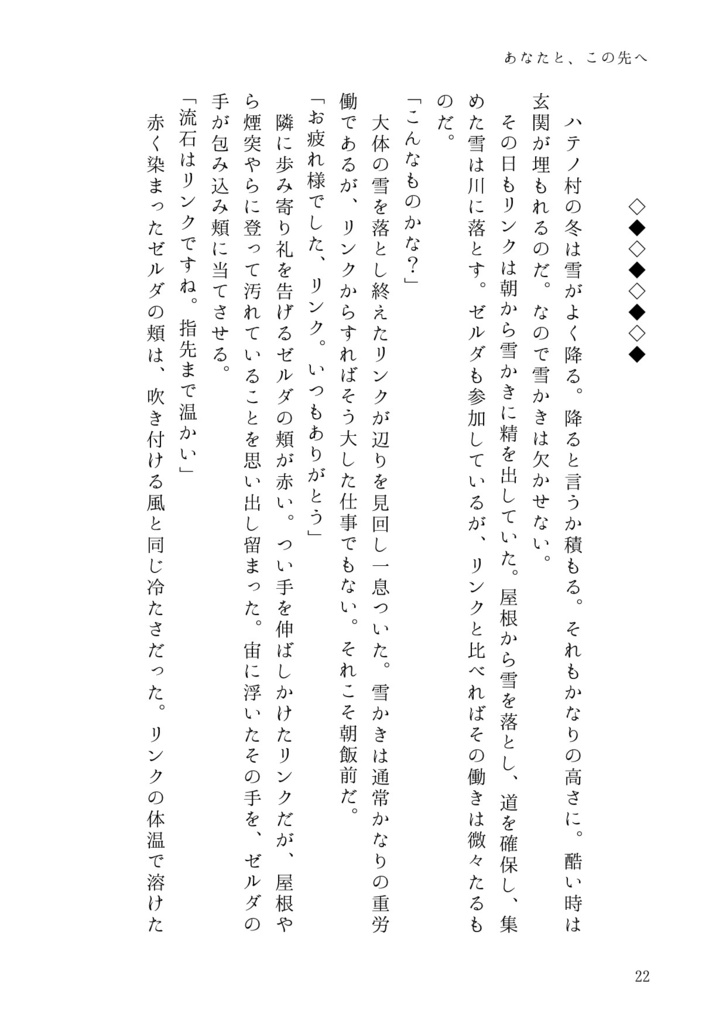 あなたと、この先へ
◇◆◇◆◇◆◇◆
　ハテノ村の冬は雪がよく降る。降ると言うか積もる。それもかなりの高さに。酷い時は
玄関が埋もれるのだ。なので雪かきは欠かせない。
　その日もリンクは朝から雪かきに精を出していた。屋根から雪を落とし、道を確保し、集
めた雪は川に落とす。ゼルダも参加しているが、リンクと比べればその働きは微々たるも
のだ。
「こんなものかな？」
　大体の雪を落とし終えたリンクが辺りを見回し一息ついた。雪かきは通常かなりの重労
働であるが、リンクからすればそう大した仕事でもない。それこそ朝飯前だ。
「お疲れ様でした、リンク。いつもありがとう」
　隣に歩み寄り礼を告げるゼルダの頬が赤い。つい手を伸ばしかけたリンクだが、屋根や
ら煙突やらに登って汚れていることを思い出し留まった。宙に浮いたその手を、ゼルダの
手が包み込み頬に当てさせる。
「流石はリンクですね。指先まで温かい」
　赤く染まったゼルダの頬は、吹き付ける風と同じ冷たさだった。リンクの体温で溶けた
22